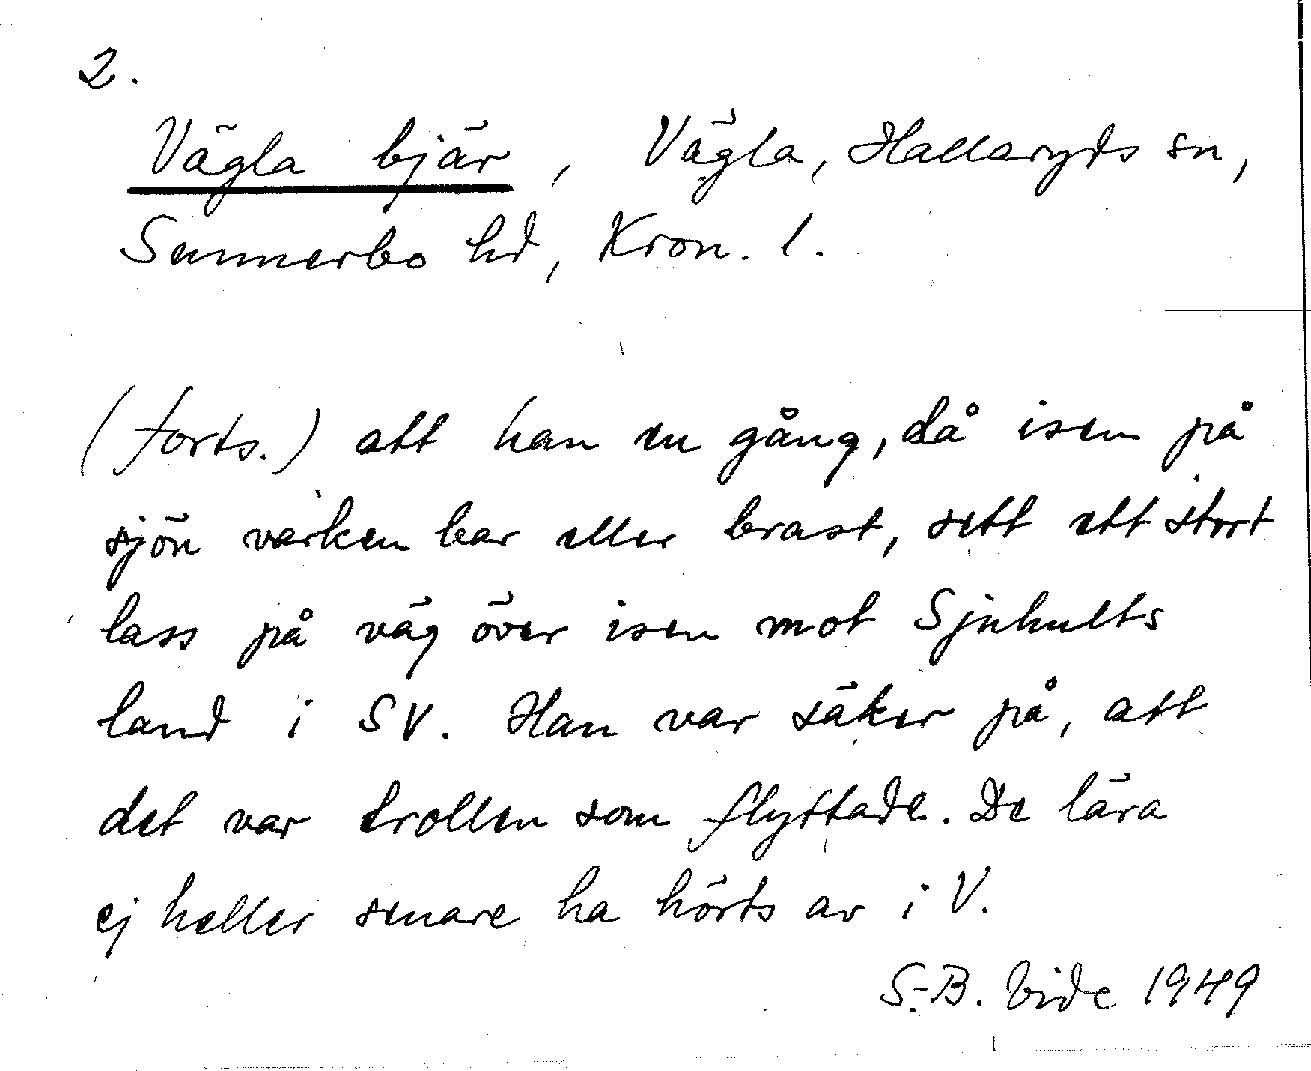 2.
Vägla bjär, Vägla, Hallaryds sn,
Sunnerbo hd, Kron. l.
(forts.) att han en gång, då isen på
sjön varken bar eller brast, sett ett stort
lass på väg över isen mot Sjnhults
land i SV. Han var säker på, att
det var trollen som flyttade. De lära
ej heller senare ha hörts av i V.
S-B. Vide 1949